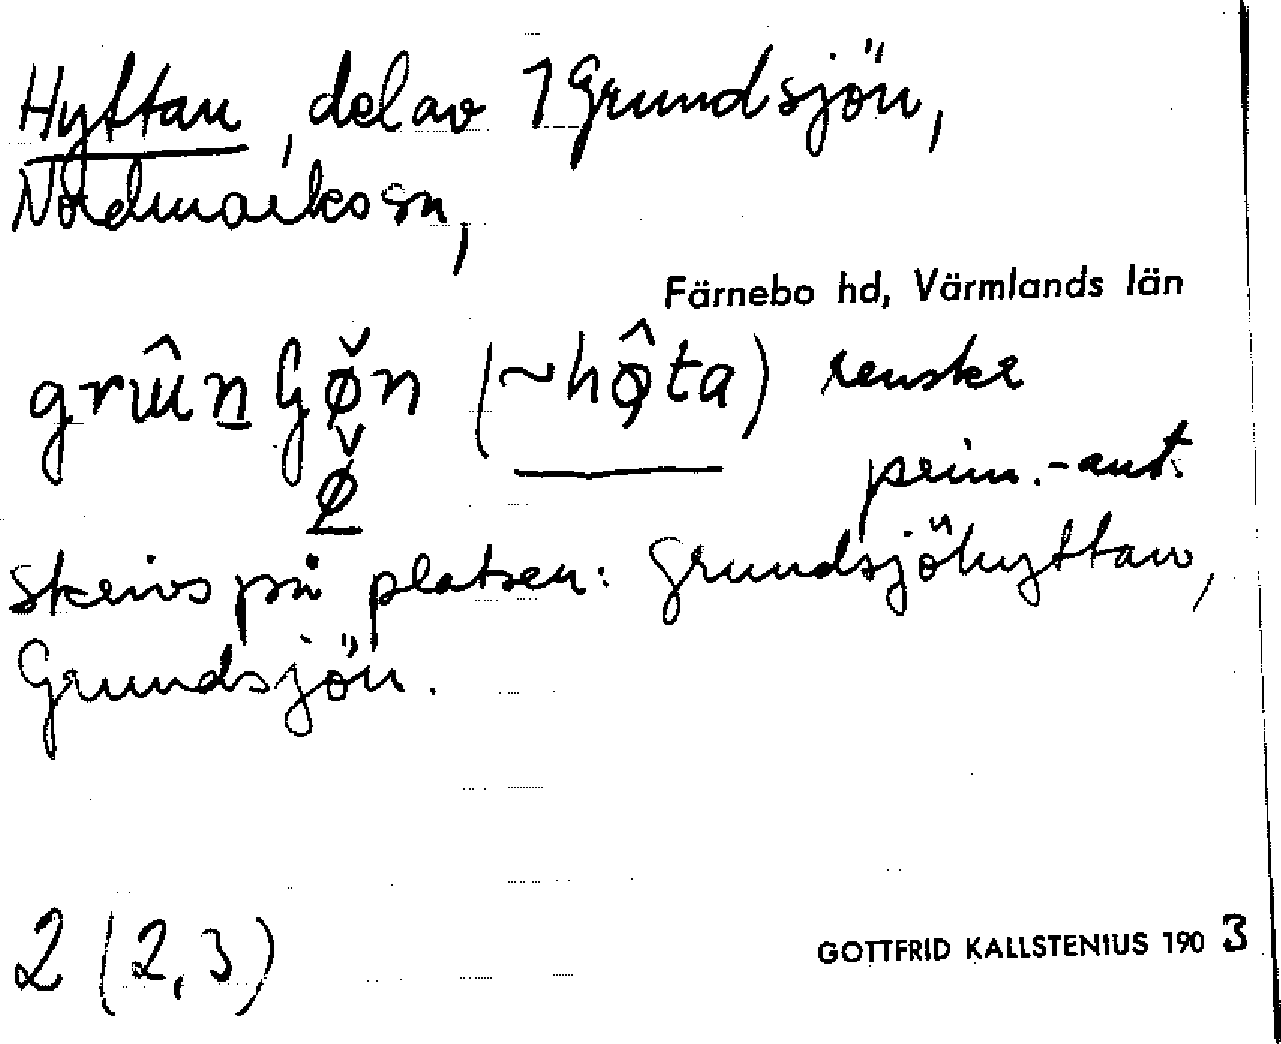 Hyttan, del av 1 Grundsjön,
Nordmarks sn,
Färnebo hd, Värmlands län
(~hø̂ta)
prim.-ant.
skrivs på platsen: Grundsjöhyttan,
Grundsjön.
2 (2,3)
GOTTFRID KALLSTENIUS 1903